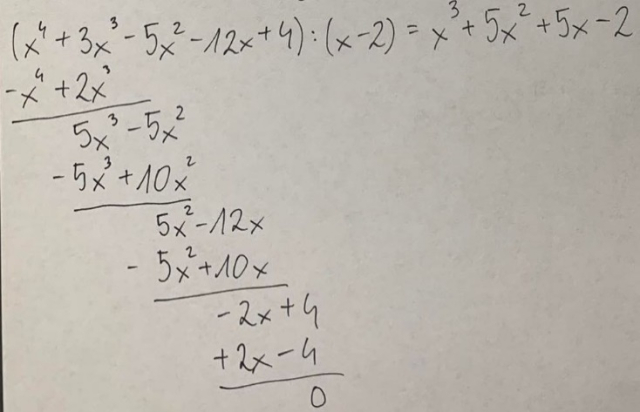 (x⁴ + 3x³ - 5x² - 12x + 4) : (x - 2) = x³ + 5x² + 5x - 2
-x⁴ + 2x³
5x³ - 5x²
- 5x³ + 10x²
5x² - 12x
- 5x² + 10x
- 2x + 4
+ 2x - 4
0